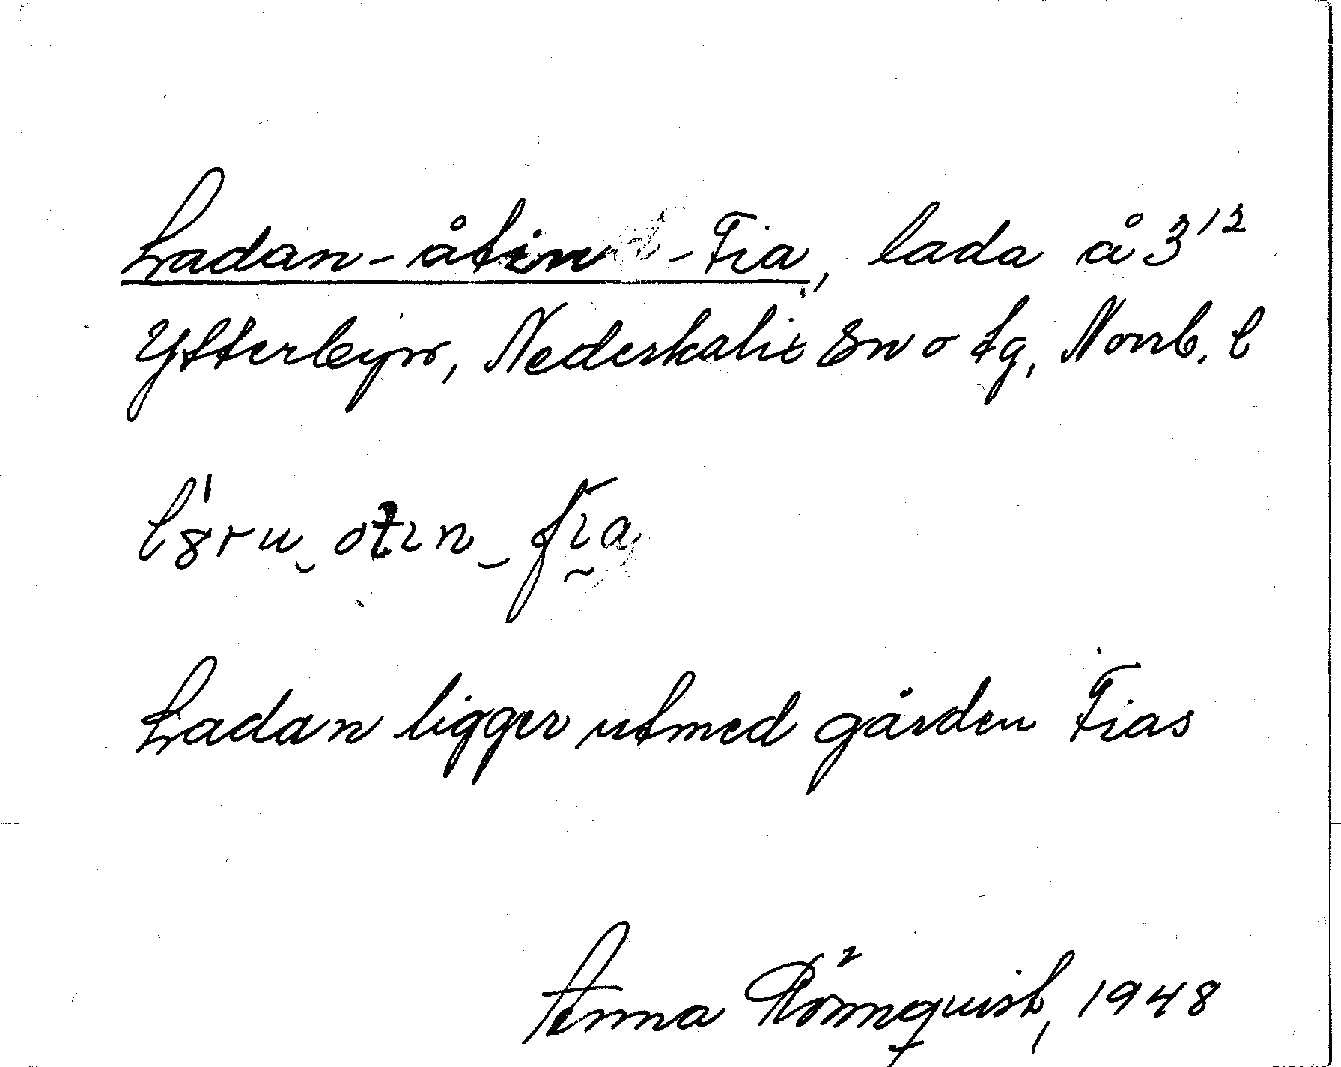 Ladan-åtin-Fia, lada å 3¹²
Ytterbyn, Nederkalix sn o tg, Norrb. l
Ladan ligger utmed gården Fias
Anna Rönnquist, 1948